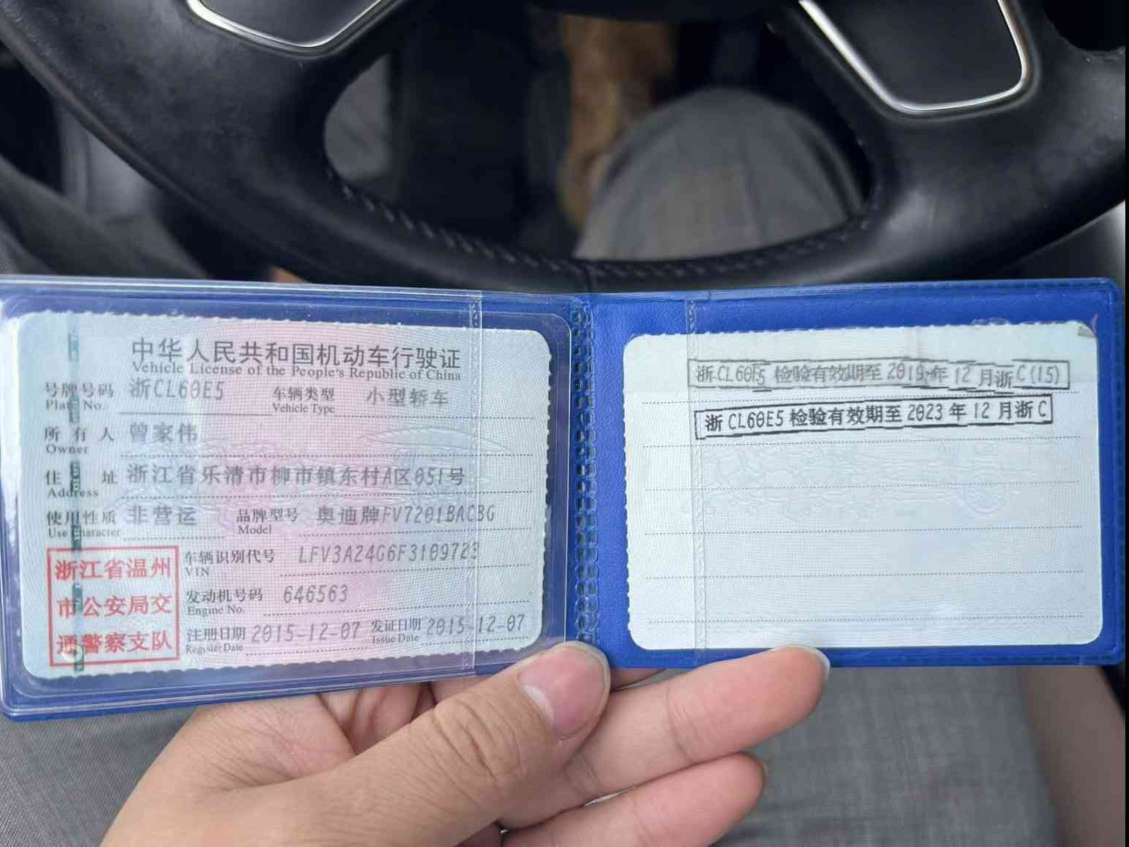 中华人民共和国机动车行驶证
Vehicle License of the People's Republic of China
号牌号码 浙CL60E5 车辆类型 小型轿车
Plate No. Vehicle Type
所有人 曾家伟
Owner
住址 浙江省乐清市柳市镇东村A区051号
Address
使用性质 非营运 品牌型号 奥迪牌FV7201BACBG
Use Character Model
浙江省温州
市公安局交
通警察支队
车辆识别代号 LFV3A24G6F3109723
VIN
发动机号码 646563
Engine No.
注册日期 2015-12-07 发证日期 2015-12-07
Register Date Issue Date
浙CL60E5 检验有效期至 2019年 12月浙C(15)
浙CL60E5检验有效期至 2023年 12月浙C